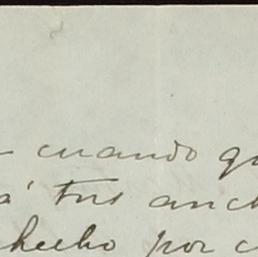 cuando qu
á tus anch
hecho por c